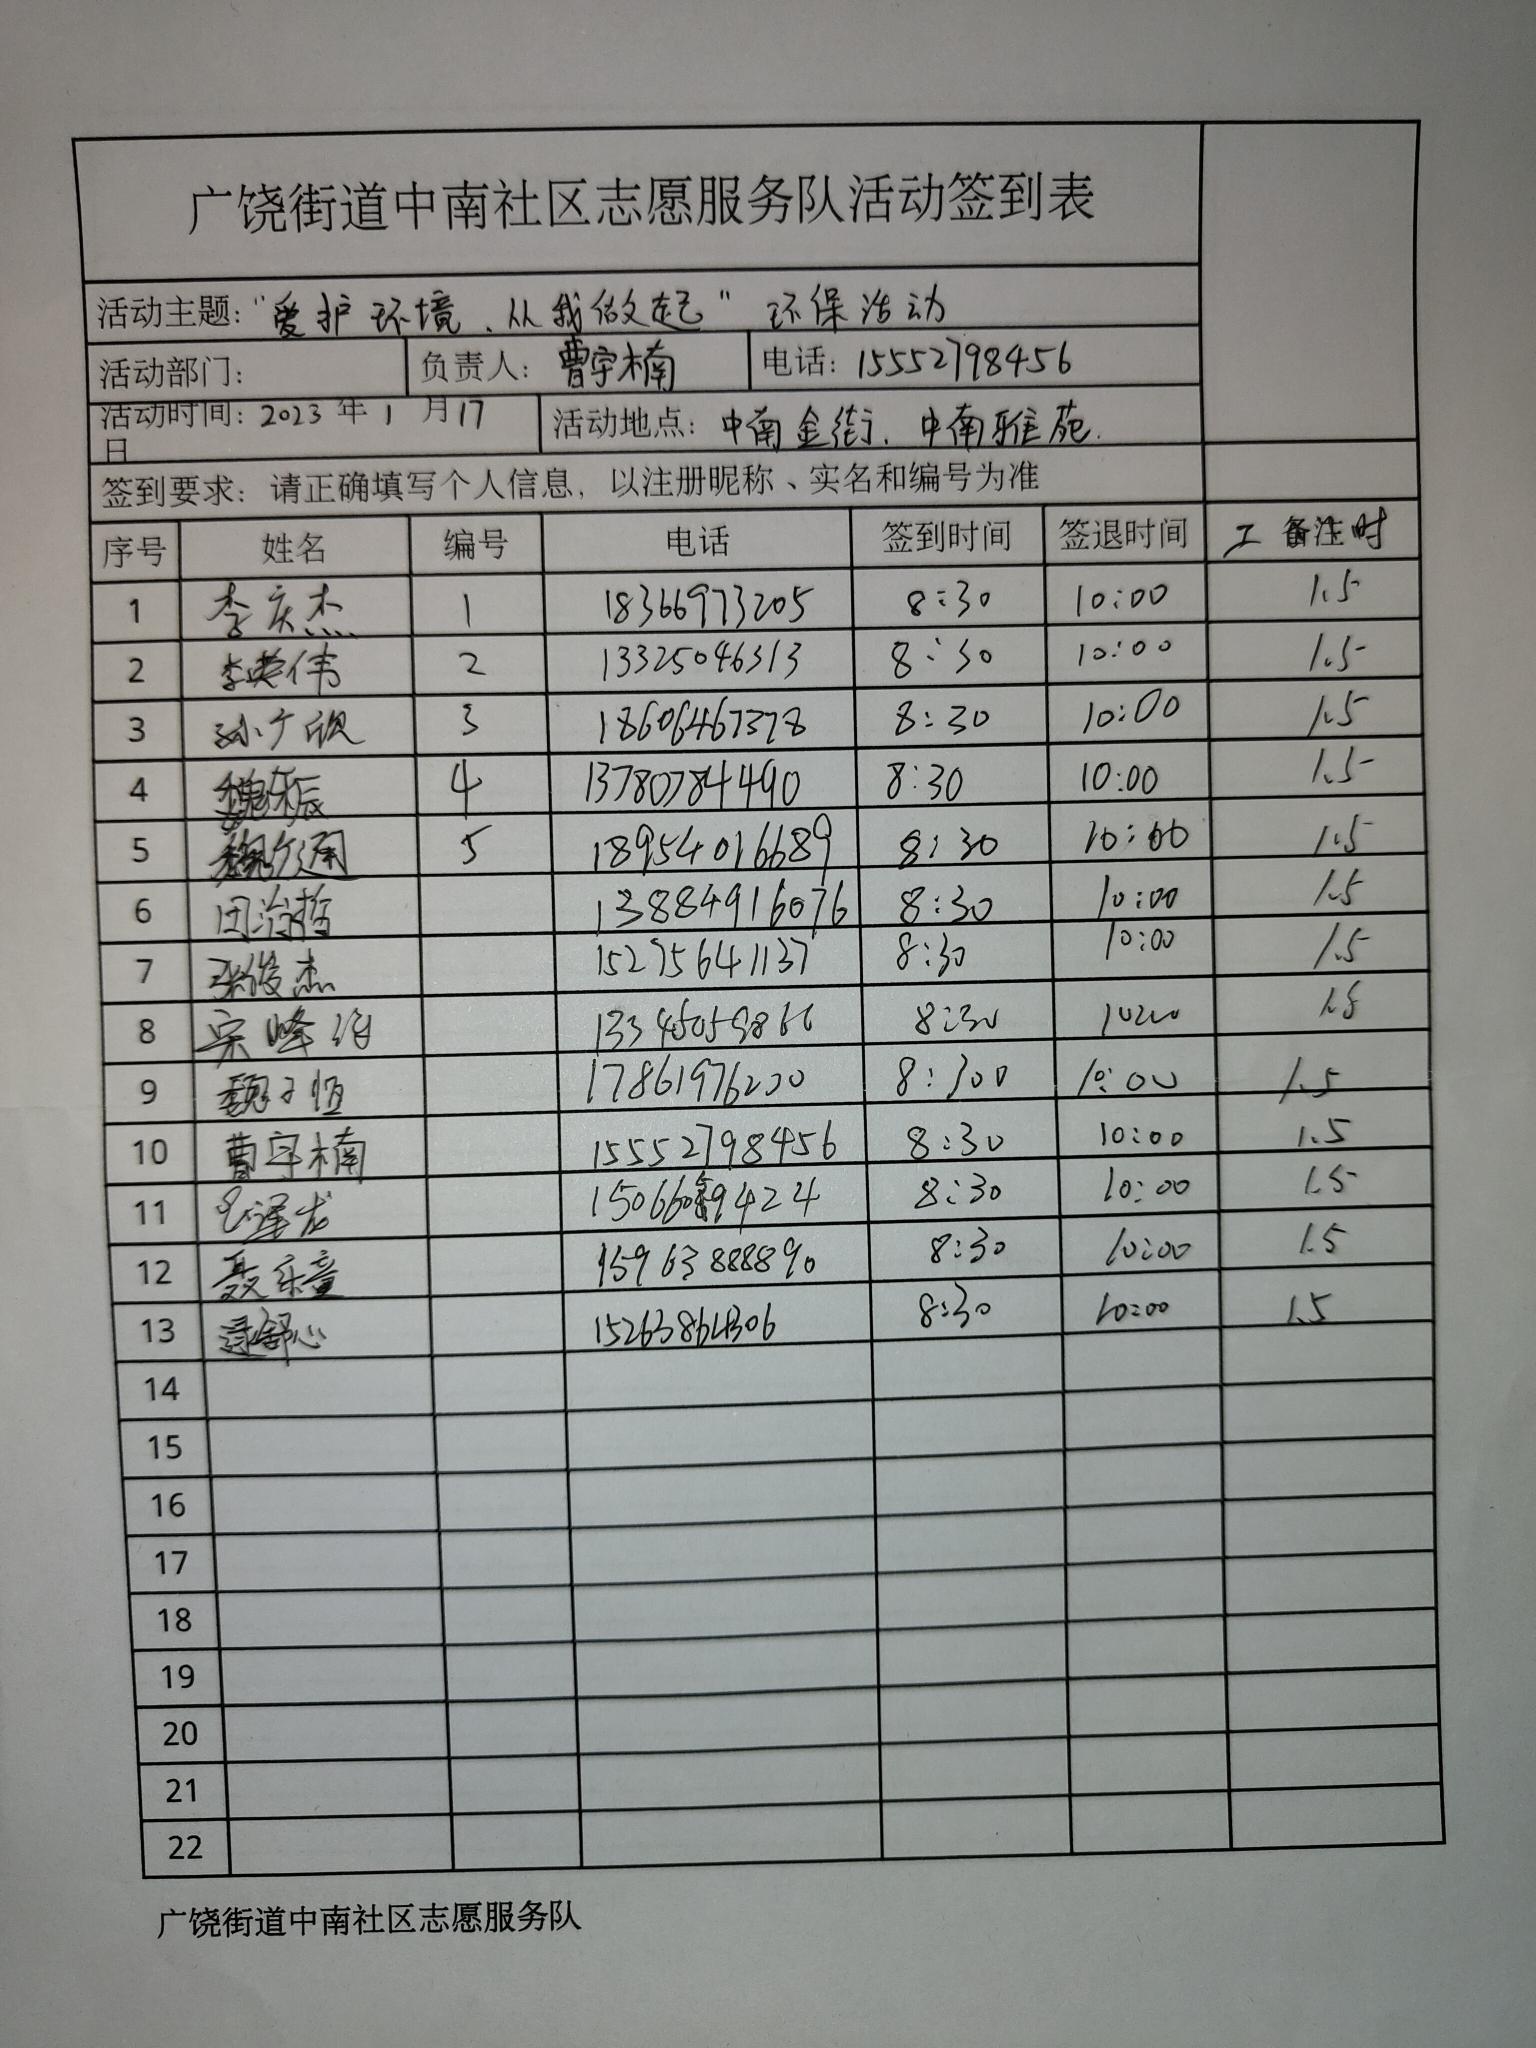 广饶街道中南社区志愿服务队活动签到表
活动主题："爱护环境、从我做起" 环保活动
活动部门： 负责人：曹宇楠 电话：15552798456
活动时间：2023年1月17日 活动地点：中南金街、中南雅苑.
签到要求：请正确填写个人信息，以注册昵称、实名和编号为准
序号 姓名 编号 电话 签到时间 签退时间 工 备注时
1 李庆杰 1 18366973205 8:30 10:00 1.5
2 李英伟 2 13325046313 8:30 10:00 1.5
3 孙广欣 3 18606467378 8:30 10:00 1.5
4 魏乐辰 4 13780784490 8:30 10:00 1.5
5 5 18954016689 8:30 10:00 1.5
6 田治哲 13884916076 8:30 10:00 1.5
7 张俊杰 15275641137 8:30 10:00 1.5
8 宋峰 8:30 10:00 1.5
9 魏子恒 17861976200 8:300 10:00 1.5
10 曹宇楠 15552798456 8:30 10:00 1.5
11 8:30 10:00 1.5
12 聂乐童 15963888890 8:30 10:00 1.5
13 舒心 8:30 10:00 1.5
14
15
16
17
18
19
20
21
22
广饶街道中南社区志愿服务队